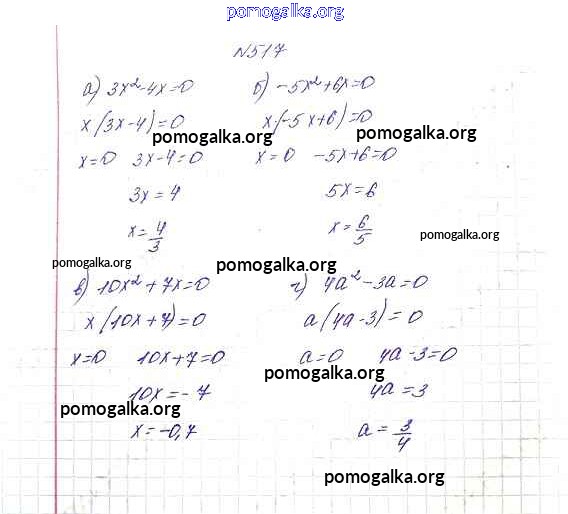 pomogalka.org
№517
а) 3x²-4x=0
x(3x-4)=0
pomogalka.org
x=0 3x-4=0
3x=4
x=4/3
pomogalka.org
б) -5x²+6x=0
x(-5x+6)=0
pomogalka.org
x=0 -5x+6=0
5x=6
x=6/5
pomogalka.org
pomogalka.org
в) 10x²+7x=0
x(10x+7)=0
x=0 10x+7=0
10x=-7
pomogalka.org
x=-0,7
г) 4a²-3a=0
a(4a-3)=0
a=0 4a-3=0
pomogalka.org
4a=3
a=3/4
pomogalka.org